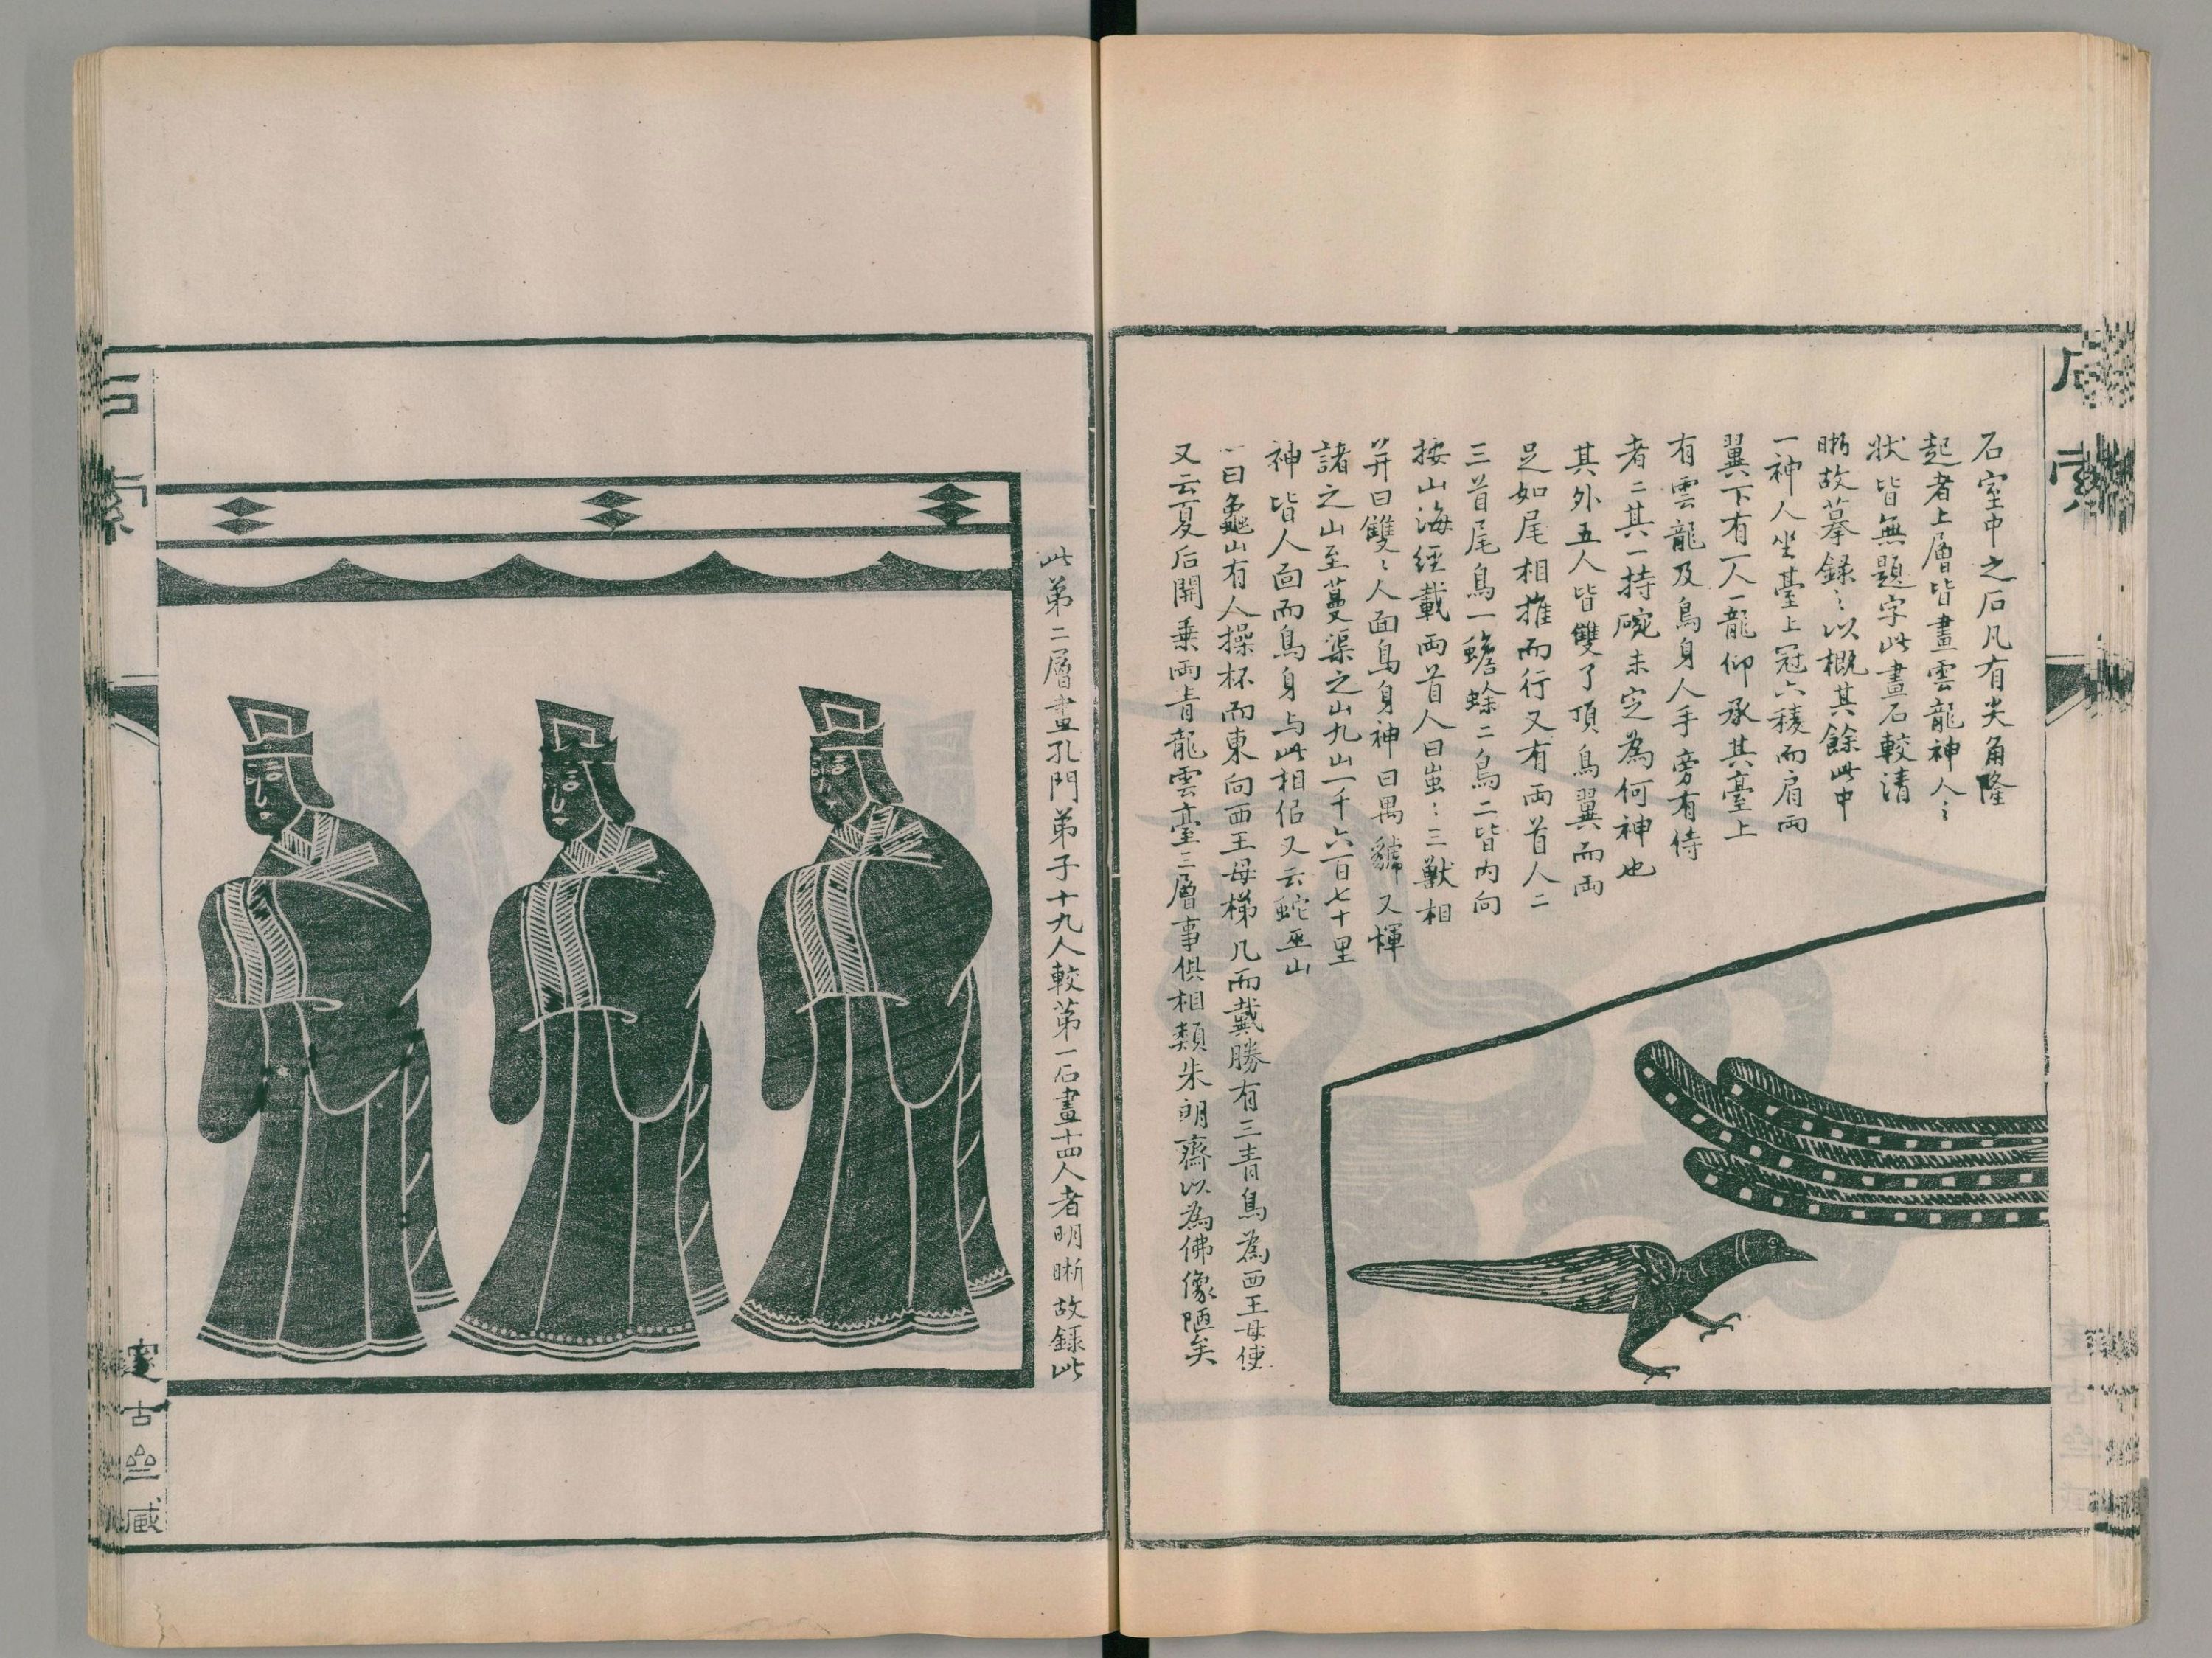 石室中之石凡有尖角隆
起者上層皆畫雲龍神人〻
狀皆無題字此畫石較清
晰故摹錄〻以概其餘此中
一神人坐臺上冠六稜而肩兩
翼下有一人一龍仰承其臺上
有雲龍及鳥身人手旁有侍
者二其一持碗未定為何神也
其外五人皆雙丫頂鳥翼而兩
足如尾相推而行又有兩首人二
三首尾鳥一蟾蜍二鳥二皆內向
按山海經載兩首人曰䖝〻三獸相
并曰雙〻人面鳥身神曰禺䝞又煇
諸之山至蔓渠之山九山一千六百七十里
神皆人面而鳥身与此相侶又云蛇巫山
一曰龜山有人操杯而東向西王母梯几而戴勝有三青鳥為西王母使
又云夏后開乗兩青龍雲臺三層事俱相類朱朗齋以為佛像陋矣
此第二層畫孔門弟子十九人較第一石畫十四人者明晰故錄此
石索
古
藏